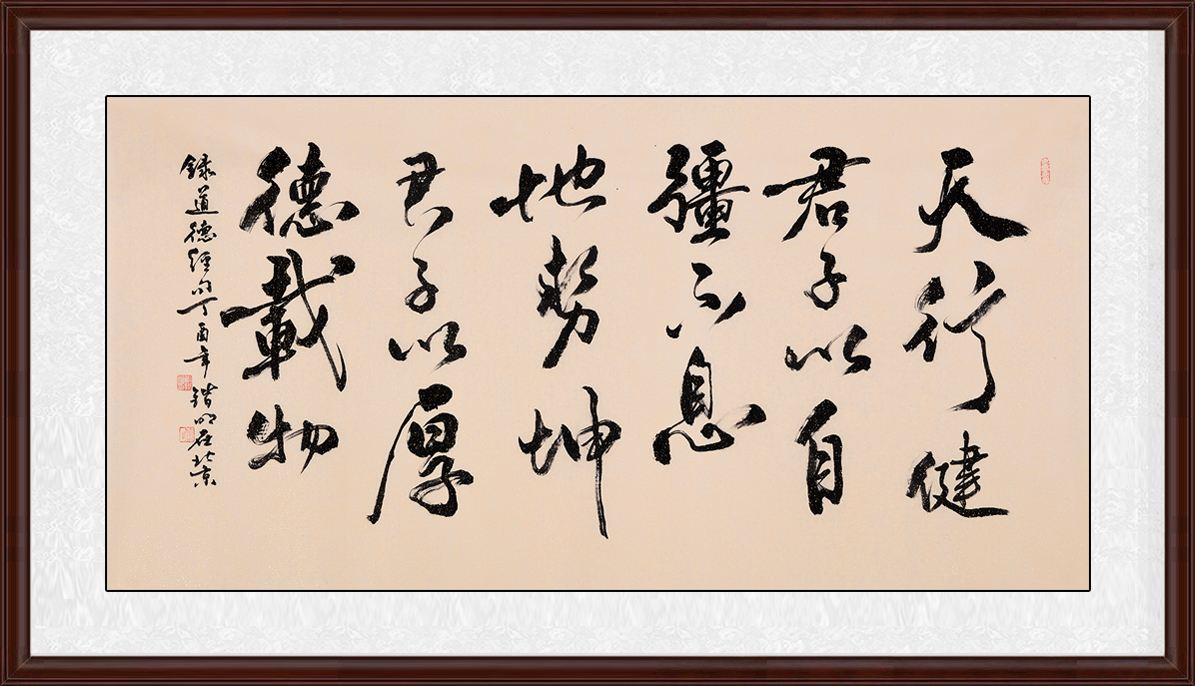 天行健
君子以自
彊不息
地勢坤
君子以厚
德載物
録道德經句丁酉年
明在北京